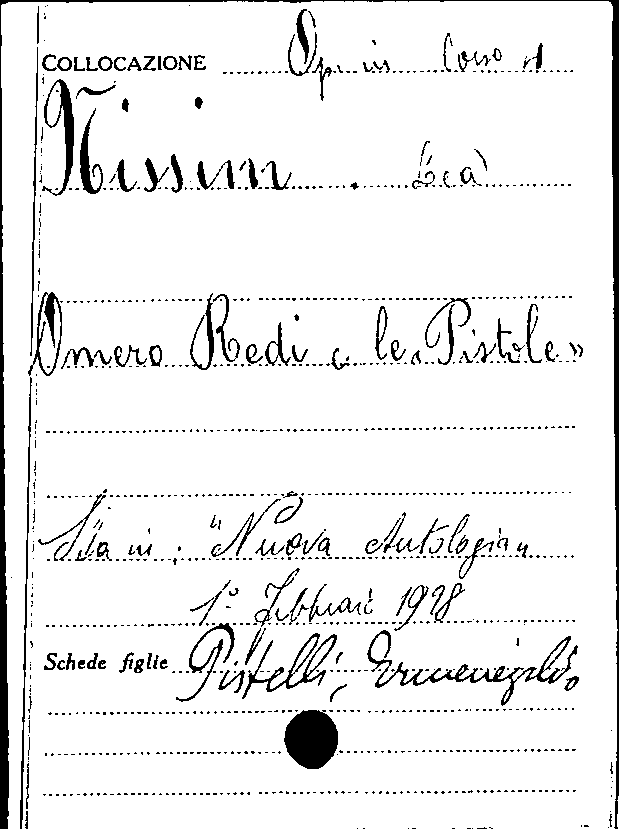 COLLOCAZIONE Op. in Corso
Nissim. Lea
Omero Redi e le «Pistole»
Sta in: "Nuova Antologia"
1° Febbraio 1928
Schede figlie Pistelli, Ermenegildo